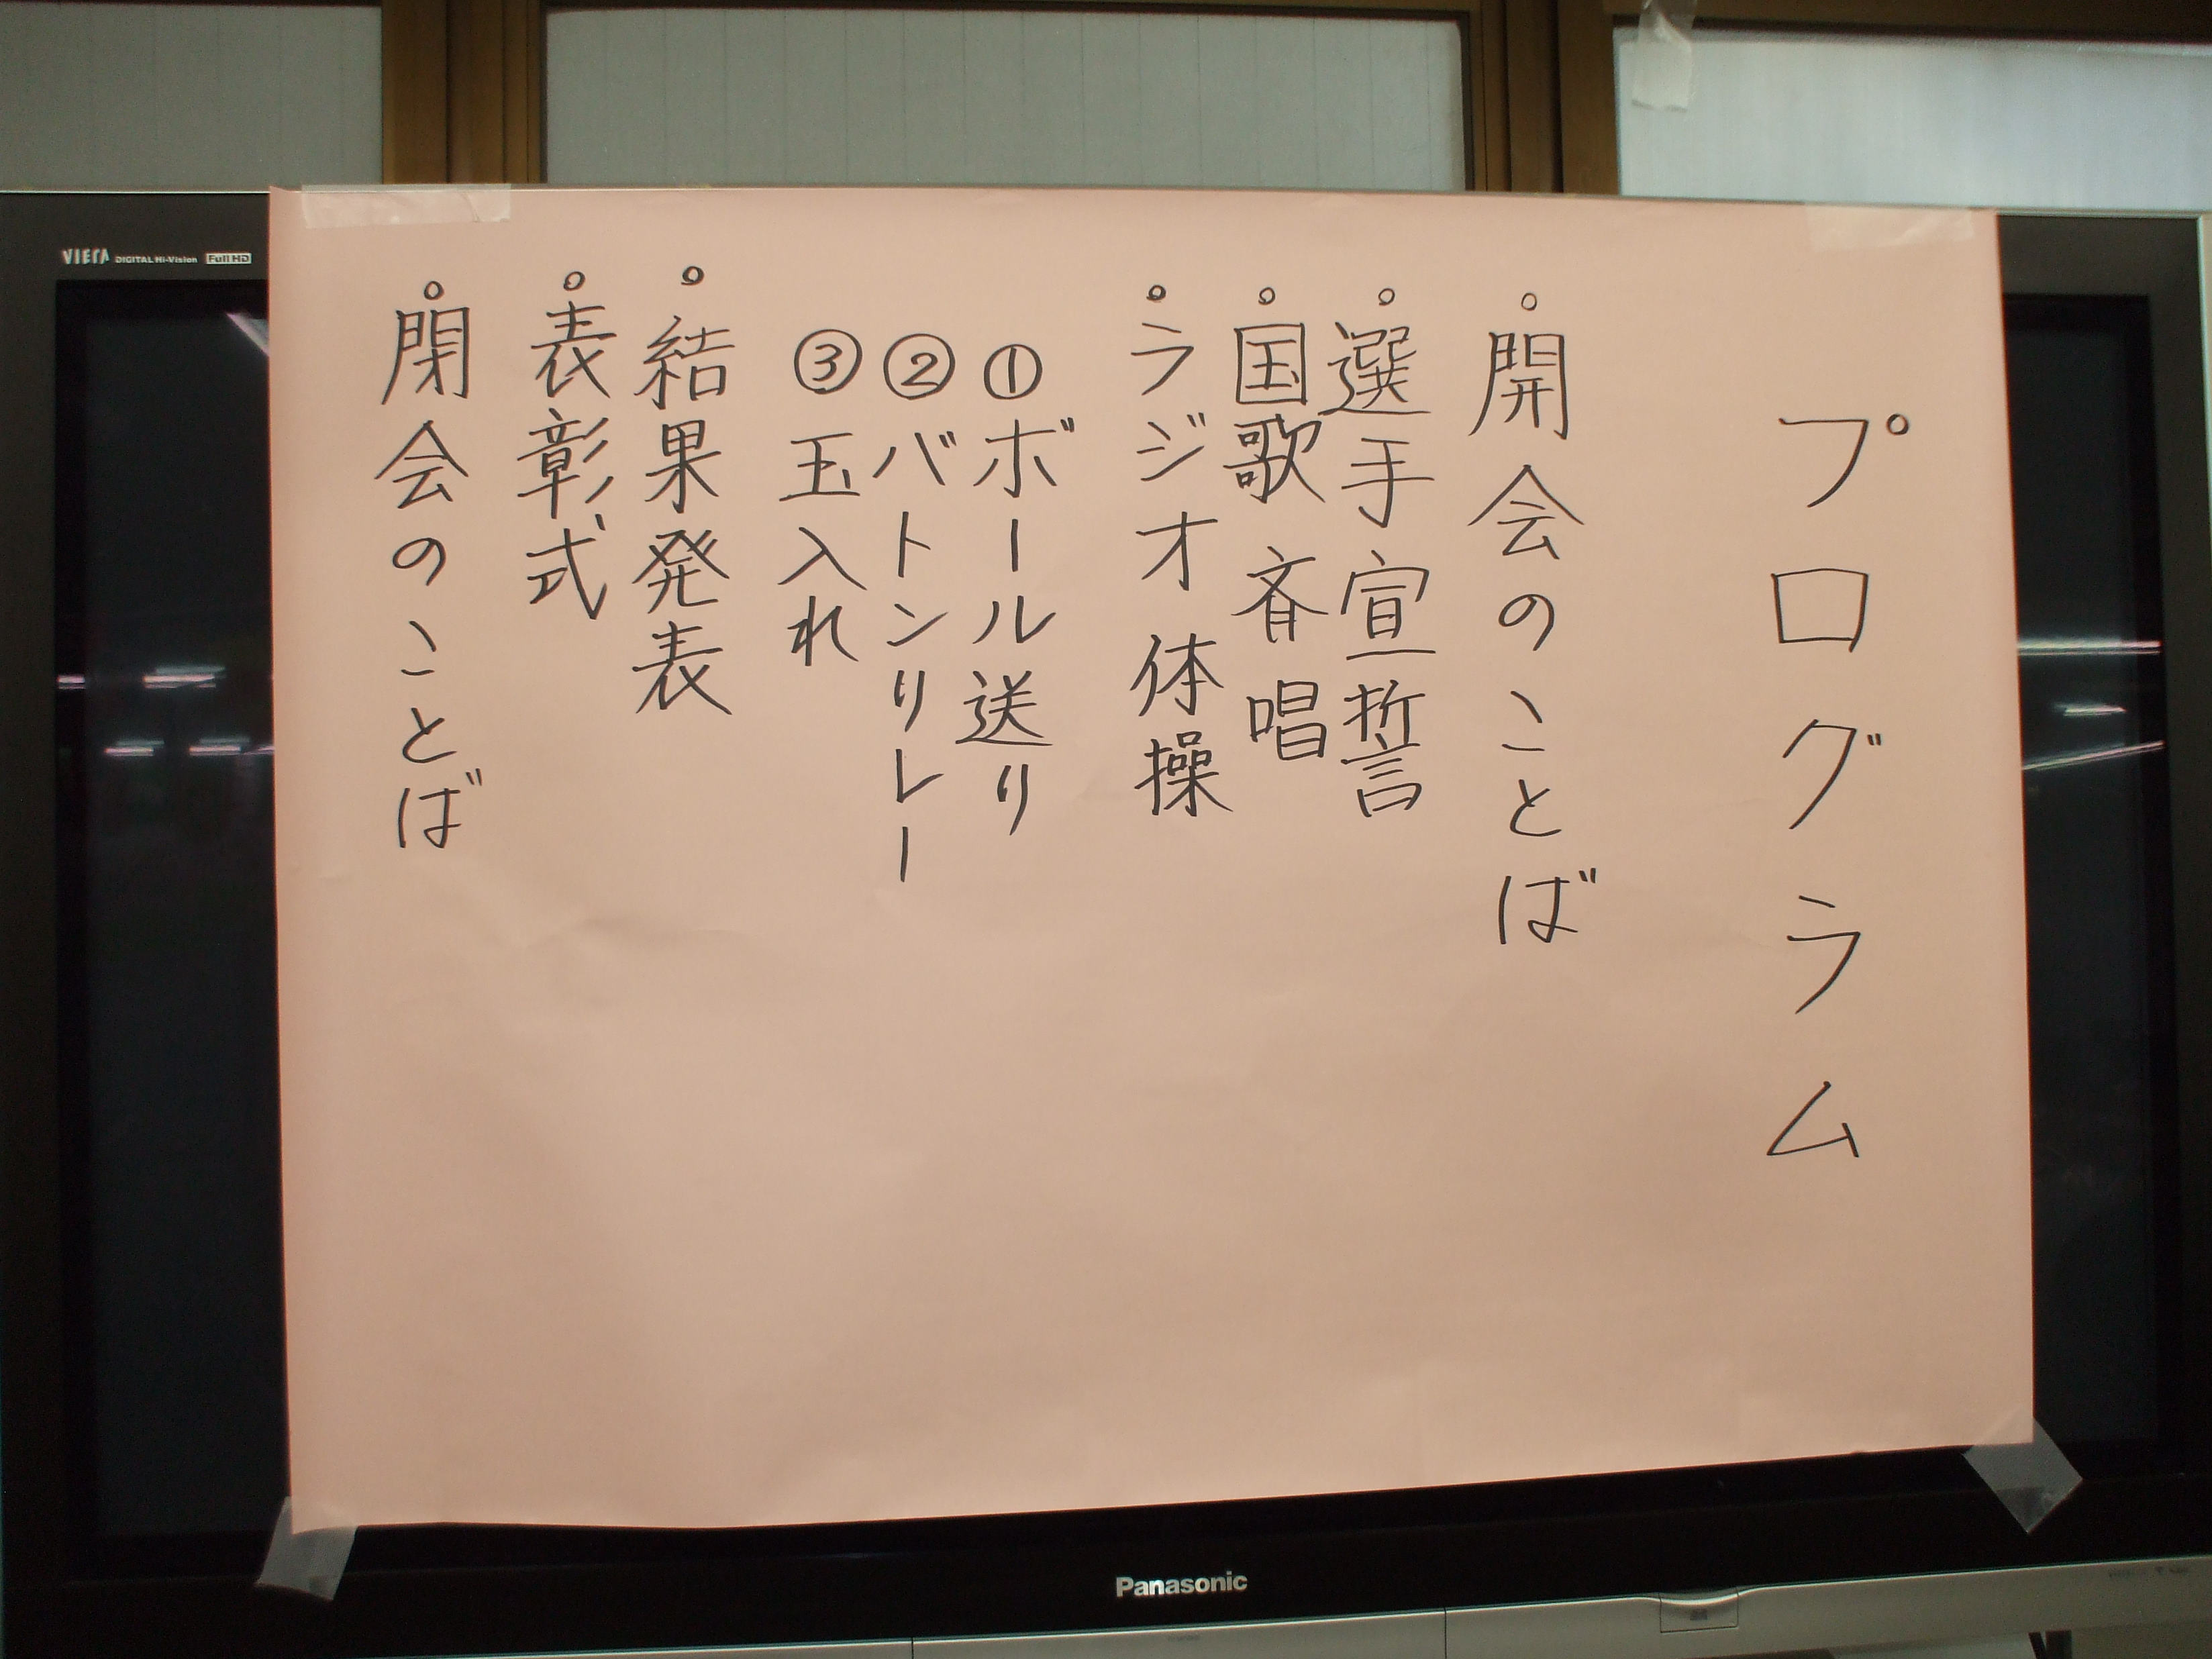 プログラム
○開会のことば
○選手宣誓
○国歌斉唱
○ラジオ体操
①ボール送り
②バトンリレー
③玉入れ
○結果発表
○表彰式
○閉会のことば
VIErA DIGITAL Hi-Vision Full HD
Panasonic